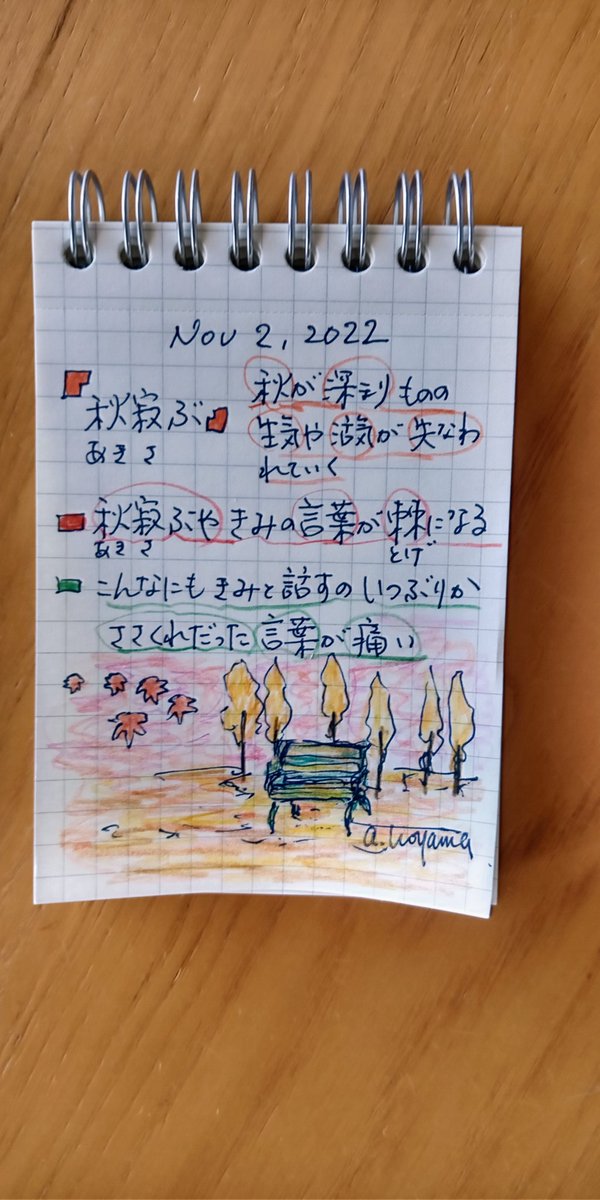 Nov 2, 2022
「秋寂ぶ」
あき さ
秋が深まりものの
生気や活気が失なわ
れていく
秋寂ぶやきみの言葉が棘になる
あき さ とげ
こんなにもきみと話すのいつぶりか
ささくれだった言葉が痛い